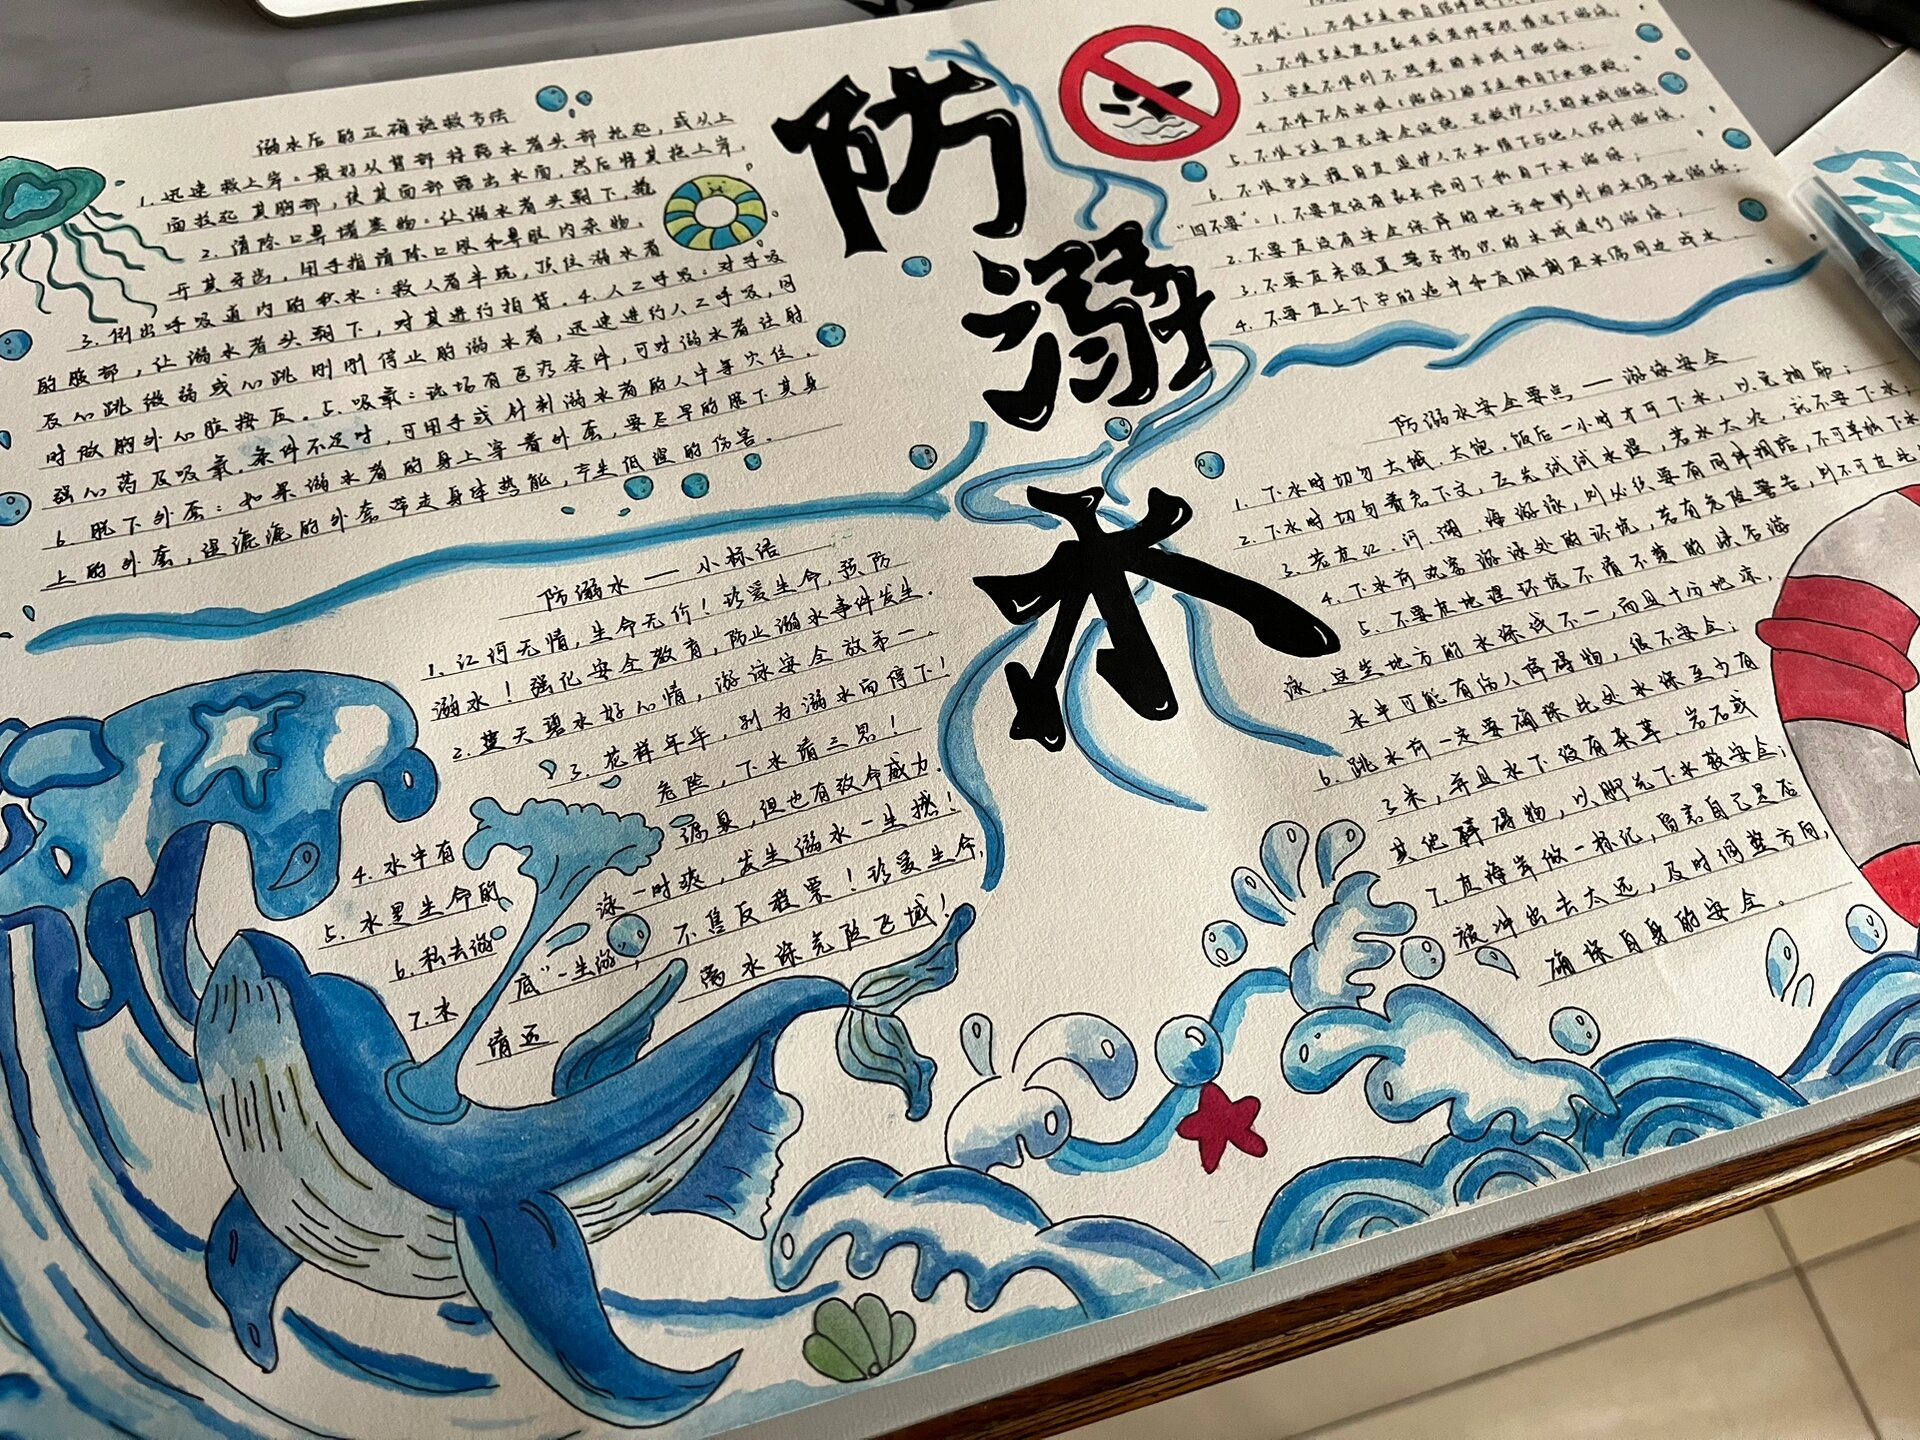 防溺水
溺水后的正确逃救方法
1.迅速救上岸：最好从背部将落水者头部托起，或从上
面拉起其胸部，使其面部露出水面，然后将其拖上岸。
2.清除口鼻堵塞物：让溺水者头朝下，
开其牙齿，用手指清除口腔和鼻腔内杂物。
3.倒出呼吸道内的积水：救人者半跪，顶住溺水者
的腹部，让溺水者头朝下，对其进行拍背。4.人工呼吸：对呼吸
及心跳微弱或心跳刚刚停止的溺水者，迅速进行人工呼吸，同
时做胸外心脏按压。5.吸氧：现场有医疗条件，可对溺水者注射
强心药及吸氧。条件不足时，可用手或针刺溺水者的人中等穴位。
6.脱下外套：如果溺水者的身上穿着外套，要尽早的脱下其身
上的外套，湿漉漉的外套带走身体热能，产生低温的伤害。
防溺水——小标语
1.江河无情，生命无价！珍爱生命，预防
溺水！强化安全教育，防止溺水事件发生。
2.蓝天碧水好心情，游泳安全放第一。
3.花样年华，别为溺水而停下！
4.水中有危险，下水请三思！
5.水是生命的源泉，但也有致命威力。
6.私去游泳一时爽，发生溺水一生憾！
7.水底"一生游，不售反程票！珍爱生命，
请远离水深危险区域！
六不准：1.不准学生私自结伴
2.不准学生在无家长或老师带领情况下游泳；
3.学生不准到不熟悉的水域中游泳；
4.不准不会水性(游泳)的学生私自下水施救；
5.不准学生在无安全设施、无救护人员的水域游泳；
6.不准学生擅自在监护人不知情下与他人结伴游泳。
"四不要"：1.不要在没有家长陪同下私自下水游泳；
2.不要在没有安全保障的地方和野外的水停地游泳；
3.不要在未设置警示标识的水域进行游泳；
4.不要在上下学的途中和在假期在水停周边戏水。
防溺水安全要点——游泳安全
1.下水时切勿太饿、太饱。饭后一小时才可下水，以免抽筋；
2.下水时切勿着急下文，应先试试水温，若水太冷，就不要下水；
3.若在江、河、湖、海游泳，则必须要有同伴相陪，不可单独下水
4.下水前观察游泳处的环境，若有危险警告，则不可在此
5.不要在地理环境不清不楚的峡谷游
泳。这些地方的水深浅不一，而且十分地凉，
水中可能有伤人障碍物，很不安全；
6.跳水前一定要确保此处水深至少有
3米，并且水下没有杂草、岩石或
其他障碍物，以脚先下水较安全；
7.在海岸做一标记，留意自己是否
被冲出去太远，及时调整方向，
确保自身的安全。